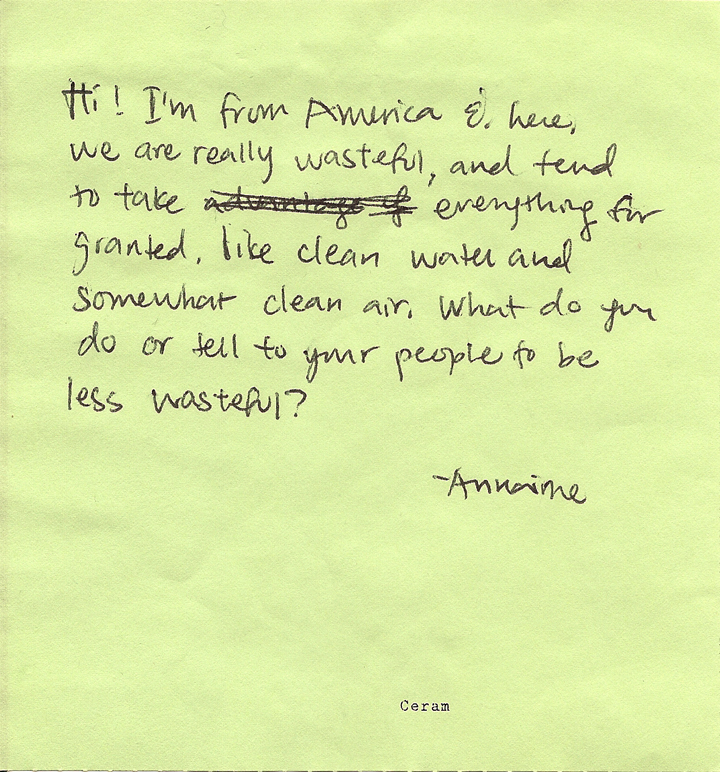 Hi! I'm from America & here,
we are really wasteful, and tend
to take advantage of everything for
granted, like clean water and
somewhat clean air. What do you
do or tell to your people to be
less wasteful?
-Annaime
Ceram